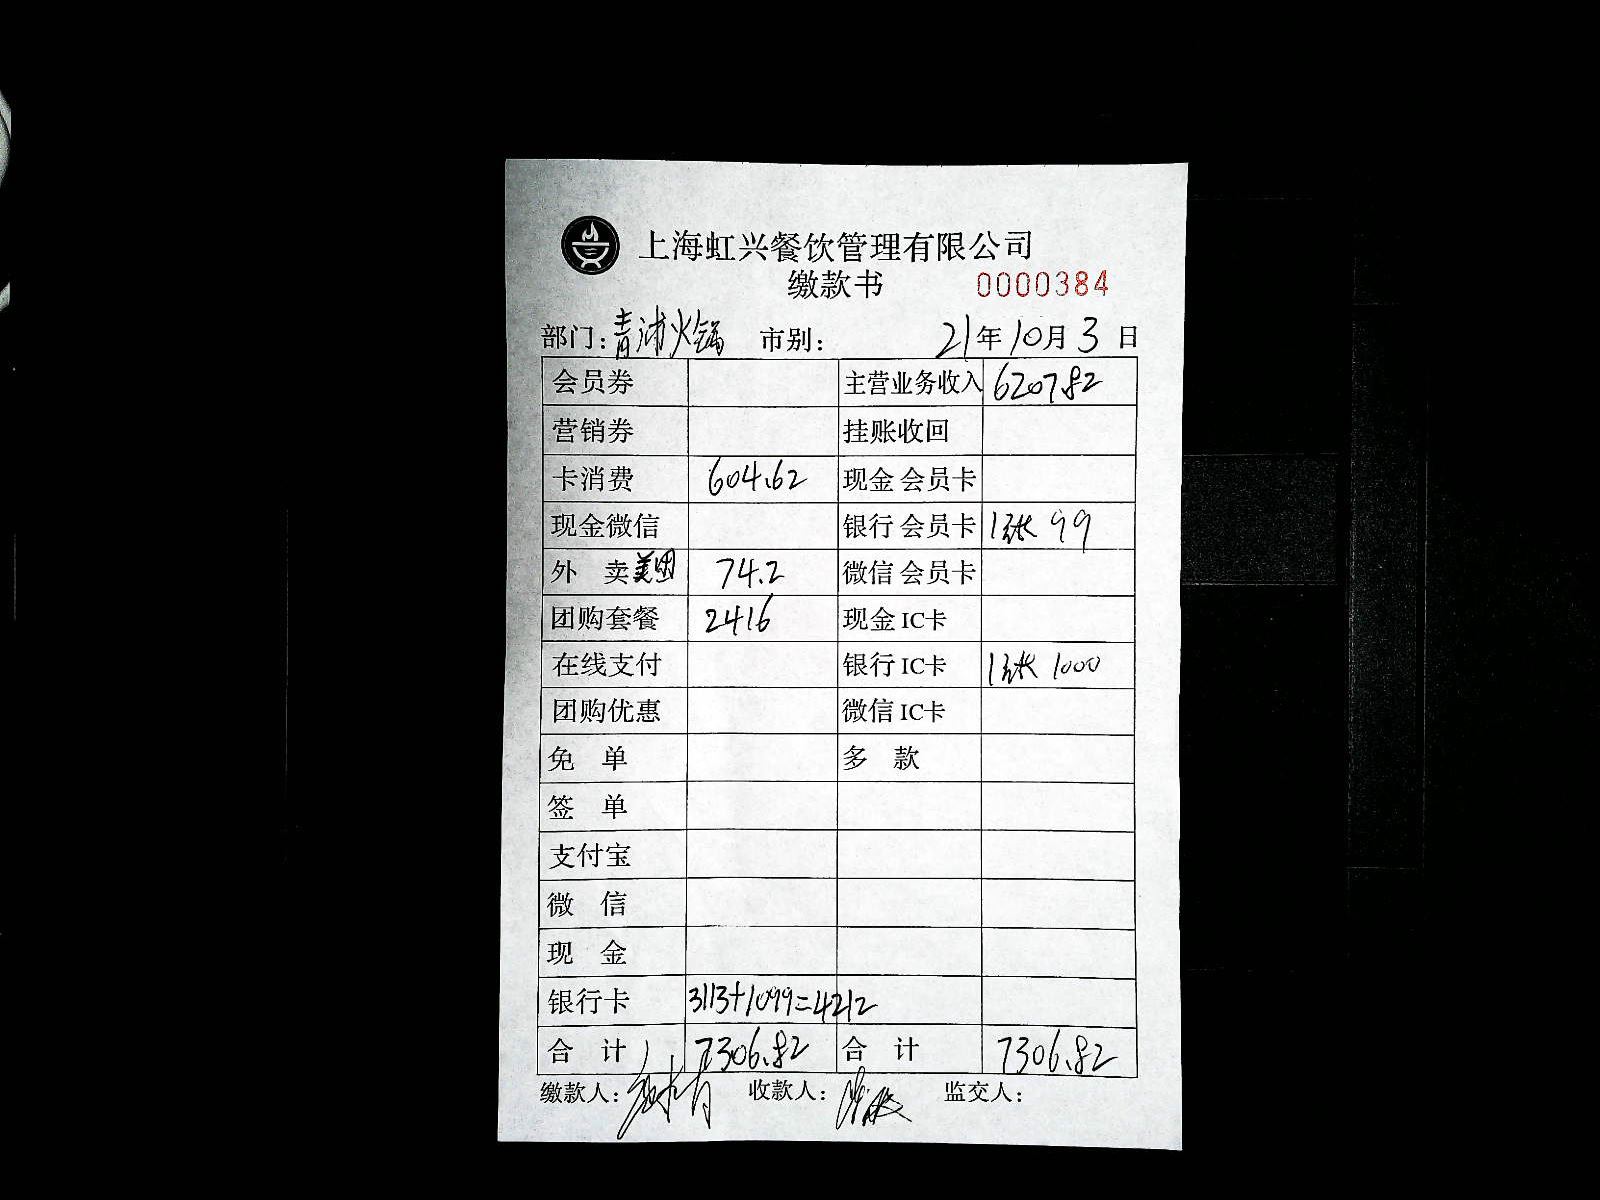 上海虹兴餐饮管理有限公司
缴款书 0000384
部门：青浦火锅 市别： 21年10月3日
会员券 主营业务收入 6207.82
营销券 挂账收回
卡消费 604.62 现金 会员卡
现金微信 银行 会员卡 1张 99
外 卖美团 74.2 微信 会员卡
团购套餐 2416 现金 IC卡
在线支付 银行 IC卡 1张 1000
团购优惠 微信 IC卡
免 单 多 款
签 单
支付宝
微 信
现 金
银行卡 3113+1099=4212
合 计 7306.82 合 计 7306.82
缴款人： 收款人： 监交人：